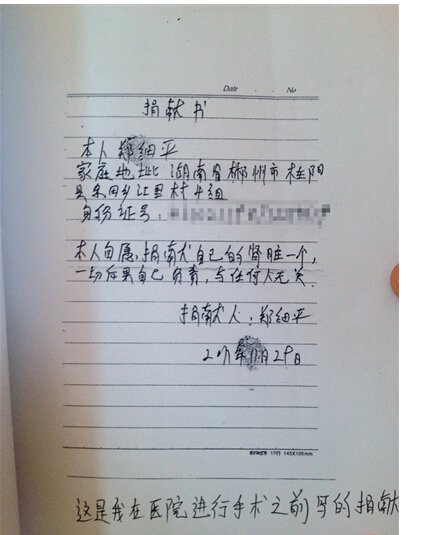 Date · No
捐献书
本人郑细平
家庭地址 湖南省郴州市桂阳
县东田乡江里村4组
身份证号：
本人自愿，捐献自己的肾脏一个，
一切后果自己负责，与任何人无关
捐献人：郑细平
月29日
17行 145X105mm
这是我在医院进行手术之前写的捐献